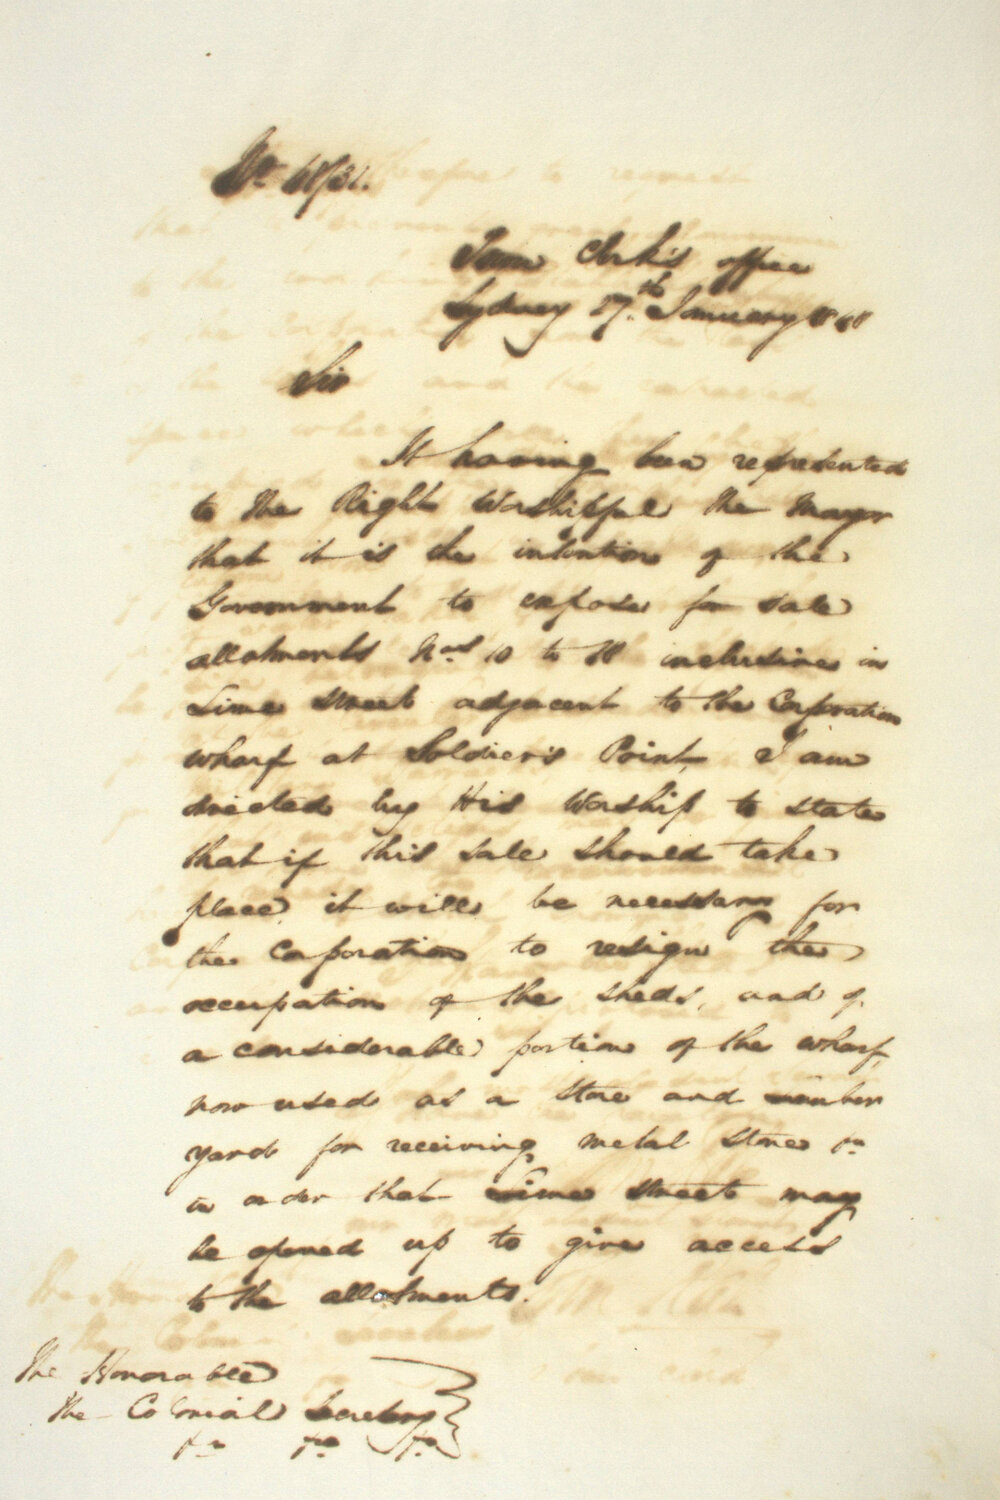 No. 48/31.
Town Clerk's office
Sydney 17th January 1848
Sir
It having been represented
to the Right Worshipful the Mayor
that it is the intention of the
Government to expose for sale
allotments Nos 10 to 18 inclusive in
Lime street adjacent to the Corporation
wharf at Soldier's Point, I am
directed by His Worship to state
that if this sale should take
place, it will be necessary for
the Corporation to resign the
occupation of the sheds, and of
a considerable portion of the wharf,
now used as a store and
yard for receiving metal stone &c
in order that Lime street may
be opened up to give access
to the allotments.
The Honorable
the Colonial Secretary
&c &c &c